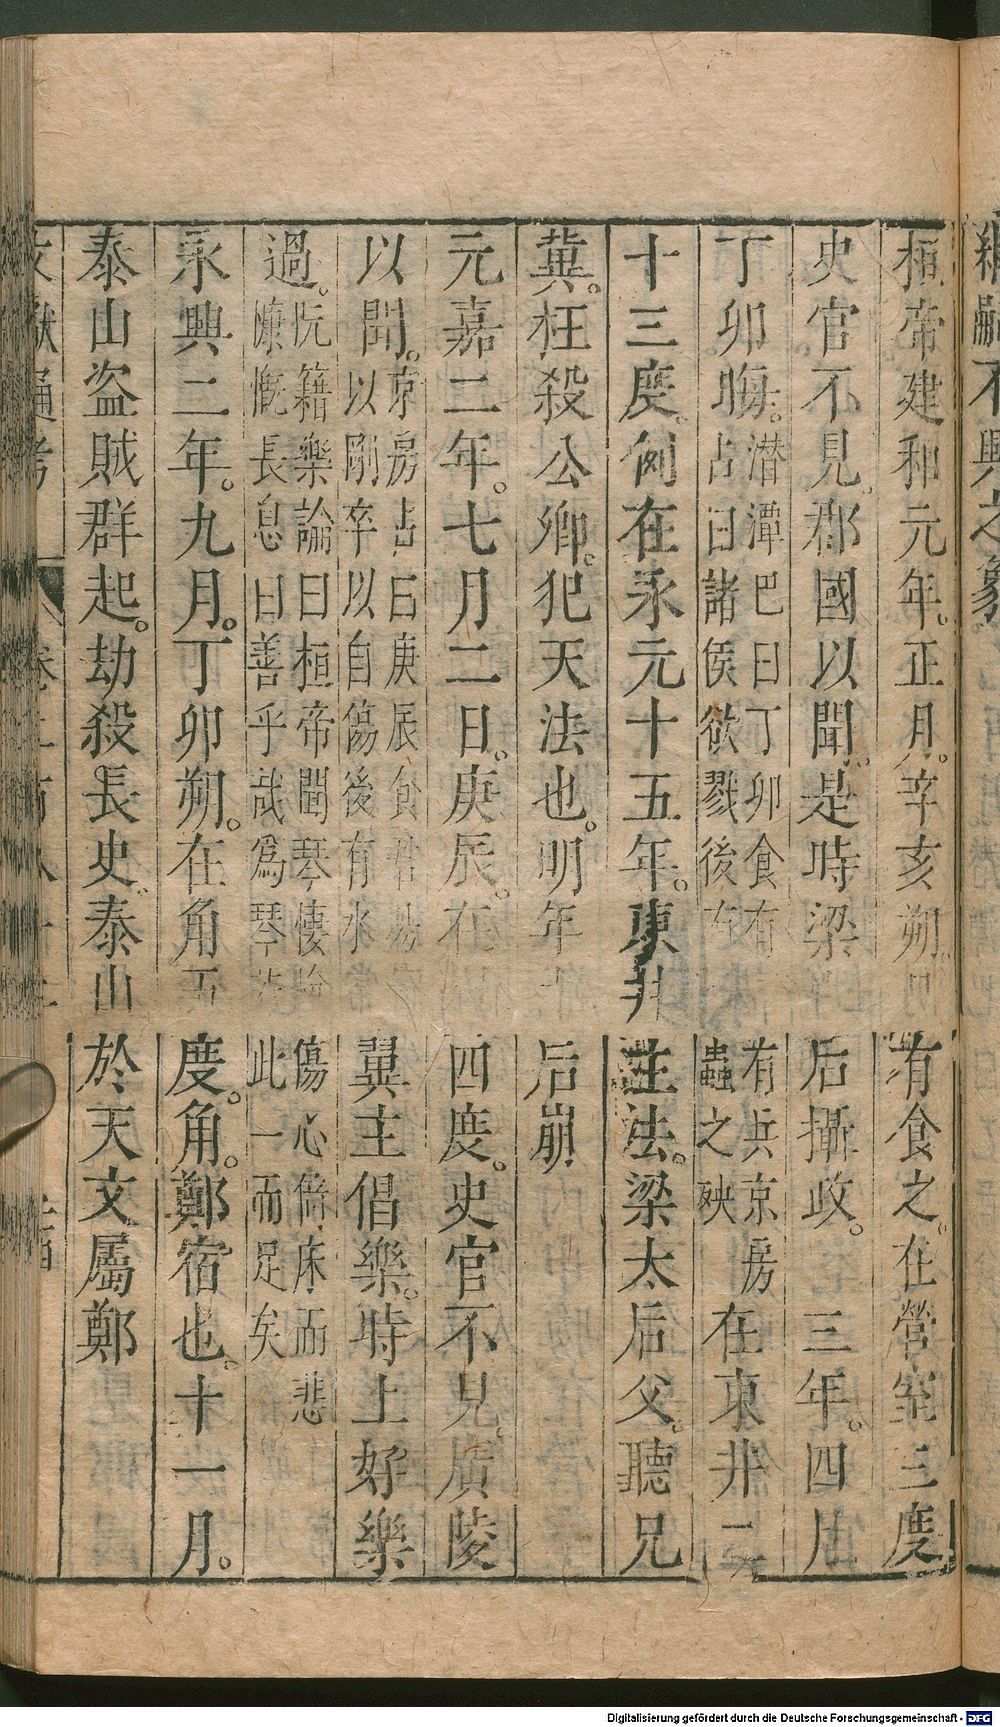 桓帝建和元年。正月。辛亥朔。日有食之。在營室三度。
史官不見。郡國以聞。是時梁后攝政。　三年。四月
丁卯晦。潛潭巴曰丁卯食有兵京房占曰諸侯欲戮後有蟲之殃在東井二
十三度。例在永元十五年。東井主法。梁太后父。聽兄
冀。枉殺公卿。犯天法也。明年后崩
元嘉二年。七月二日。庚辰。在翼四度。史官不見。廣陵
以聞。京房占曰庚辰食以剛卒以自傷後有水翼主倡樂。時上好樂
過。阮籍樂論曰桓帝聞琴悽愴傷心倚床而悲慷慨長息曰善乎哉爲琴若此一而足矣
永興二年。九月。丁卯朔。在角五度。角。鄭宿也。十一月。
泰山盜賊群起。劫殺長史。泰山於天文屬鄭
Digitalisierung gefördert durch die Deutsche Forschungsgemeinschaft - DFG